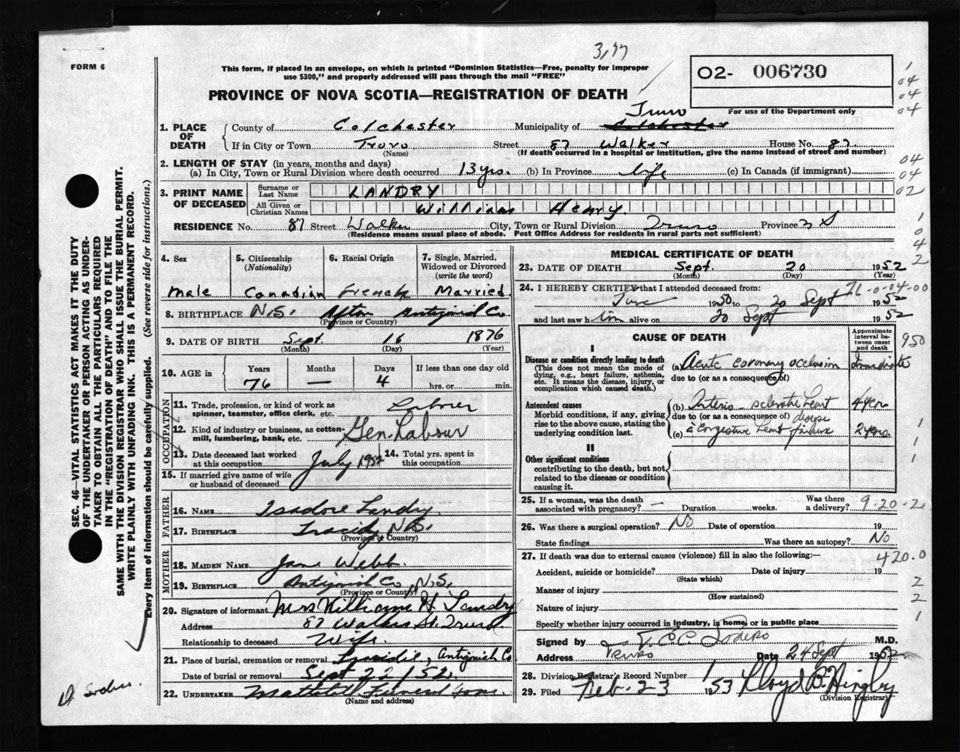 3,77
FORM 6
This form, if placed in an envelope, on which is printed "Dominion Statistics—Free, penalty for improper
use $300," and properly addressed will pass through the mail "FREE"
O2- 006730
For use of the Department only
PROVINCE OF NOVA SCOTIA—REGISTRATION OF DEATH
Truro
1. PLACE OF DEATH
County of Colchester Municipality of Colchester
If in City or Town Truro Street 87 Walker House No. 87
(Name) (If death occurred in a hospital or institution, give the name instead of street and number)
2. LENGTH OF STAY (in years, months and days)
(a) In City, Town or Rural Division where death occurred 13 yrs. (b) In Province life (c) In Canada (if immigrant)
3. PRINT NAME OF DECEASED
Surname or Last Name LANDRY
All Given or Christian Names William Henry
RESIDENCE No. 87 Street Walker City, Town or Rural Division Truro Province N S
(Residence means usual place of abode. Post Office Address for residents in rural parts not sufficient)
4. Sex 5. Citizenship (Nationality) 6. Racial Origin 7. Single, Married, Widowed or Divorced (write the word)
Male Canadian French Married
8. BIRTHPLACE N.S. Afton Antigonish Co.
(Province or Country)
9. DATE OF BIRTH Sept. 16 1876
(Month) (Day) (Year)
10. AGE Years Months Days If less than one day old
76 — 4 hrs. or min.
OCCUPATION
11. Trade, profession, or kind of work as spinner, teamster, office clerk, etc. Laborer
12. Kind of industry or business, as cotton-mill, lumbering, bank, etc. Gen. Labour
13. Date deceased last worked at this occupation July 1952 14. Total yrs. spent in this occupation
15. If married give name of wife or husband of deceased
FATHER
16. NAME Isadore Landry
17. BIRTHPLACE Tracidy N.S.
(Province or Country)
MOTHER
18. MAIDEN NAME Jane Webb
19. BIRTHPLACE Antigonish Co. N.S.
(Province or Country)
20. Signature of informant Mrs William H. Landry
Address 87 Walker St. Truro
Relationship to deceased Wife
21. Place of burial, cremation or removal Tracidie, Antigonish Co
Date of burial or removal Sept 22 / 52
22. UNDERTAKER Funeral
(Name and address)
MEDICAL CERTIFICATE OF DEATH
23. DATE OF DEATH Sept. 20 1952
(Month) (Day) (Year)
24. I HEREBY CERTIFY that I attended deceased from:
June 1950 to 20 Sept 1952
and last saw him alive on 20 Sept 1952
CAUSE OF DEATH
Approximate interval between onset and death
I
Disease or condition directly leading to death
(This does not mean the mode of dying, e.g., heart failure, asthma, etc. It means the disease, injury, or complication which caused death.)
(a) Acute coronary occlusion Immediate
due to (or as a consequence of)
Antecedent causes
Morbid conditions, if any, giving rise to the above cause, stating the underlying condition last.
(b) Arterio sclerotic heart 4 years
due to (or as a consequence of) disease
(c) c congestive heart failure 2 years
II
Other significant conditions
contributing to the death, but not related to the disease or condition causing it.
25. If a woman, was the death associated with pregnancy? — Duration weeks. Was there a delivery?
26. Was there a surgical operation? No Date of operation 19
State findings Was there an autopsy? No
27. If death was due to external causes (violence) fill in also the following:—
Accident, suicide or homicide? Date of injury 19
(State which)
Manner of injury
(How sustained)
Nature of injury
Specify whether injury occurred in industry, in home, or in public place
Signed by M.D.
Address Truro Date 24 Sept 1952
28. Division Registrar's Record Number
29. Filed Feb. 23 1953 Lloyd B. Hingley
(Division Registrar)
950
9-20-2
420.0
SEC. 46—VITAL STATISTICS ACT MAKES IT THE DUTY
OF THE UNDERTAKER OR PERSON ACTING AS UNDER-
TAKER TO OBTAIN ALL THE PARTICULARS REQUIRED
IN THE "REGISTRATION OF DEATH" AND TO FILE THE
SAME WITH THE DIVISION REGISTRAR WHO SHALL ISSUE THE BURIAL PERMIT.
WRITE PLAINLY WITH UNFADING INK. THIS IS A PERMANENT RECORD.
Every item of information should be carefully supplied. (See reverse side for instructions.)